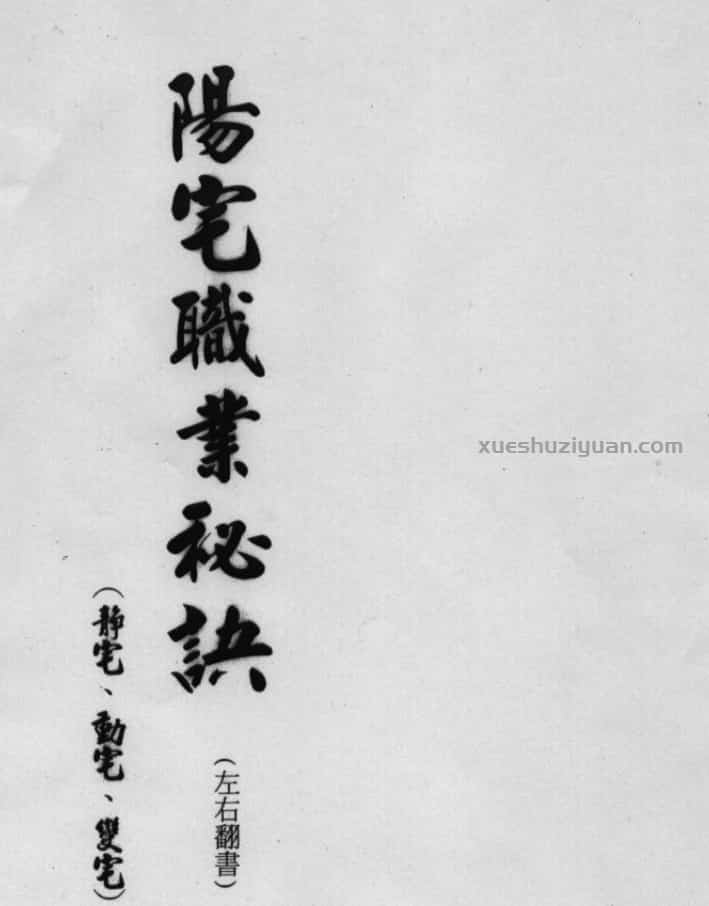 陽宅職業秘訣
(左右翻書)
(靜宅、動宅、變宅)
xueshuziyuan.com